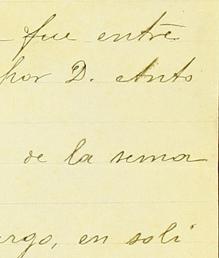 fue entre
por D. Anto
de la sema
ergo, en soli